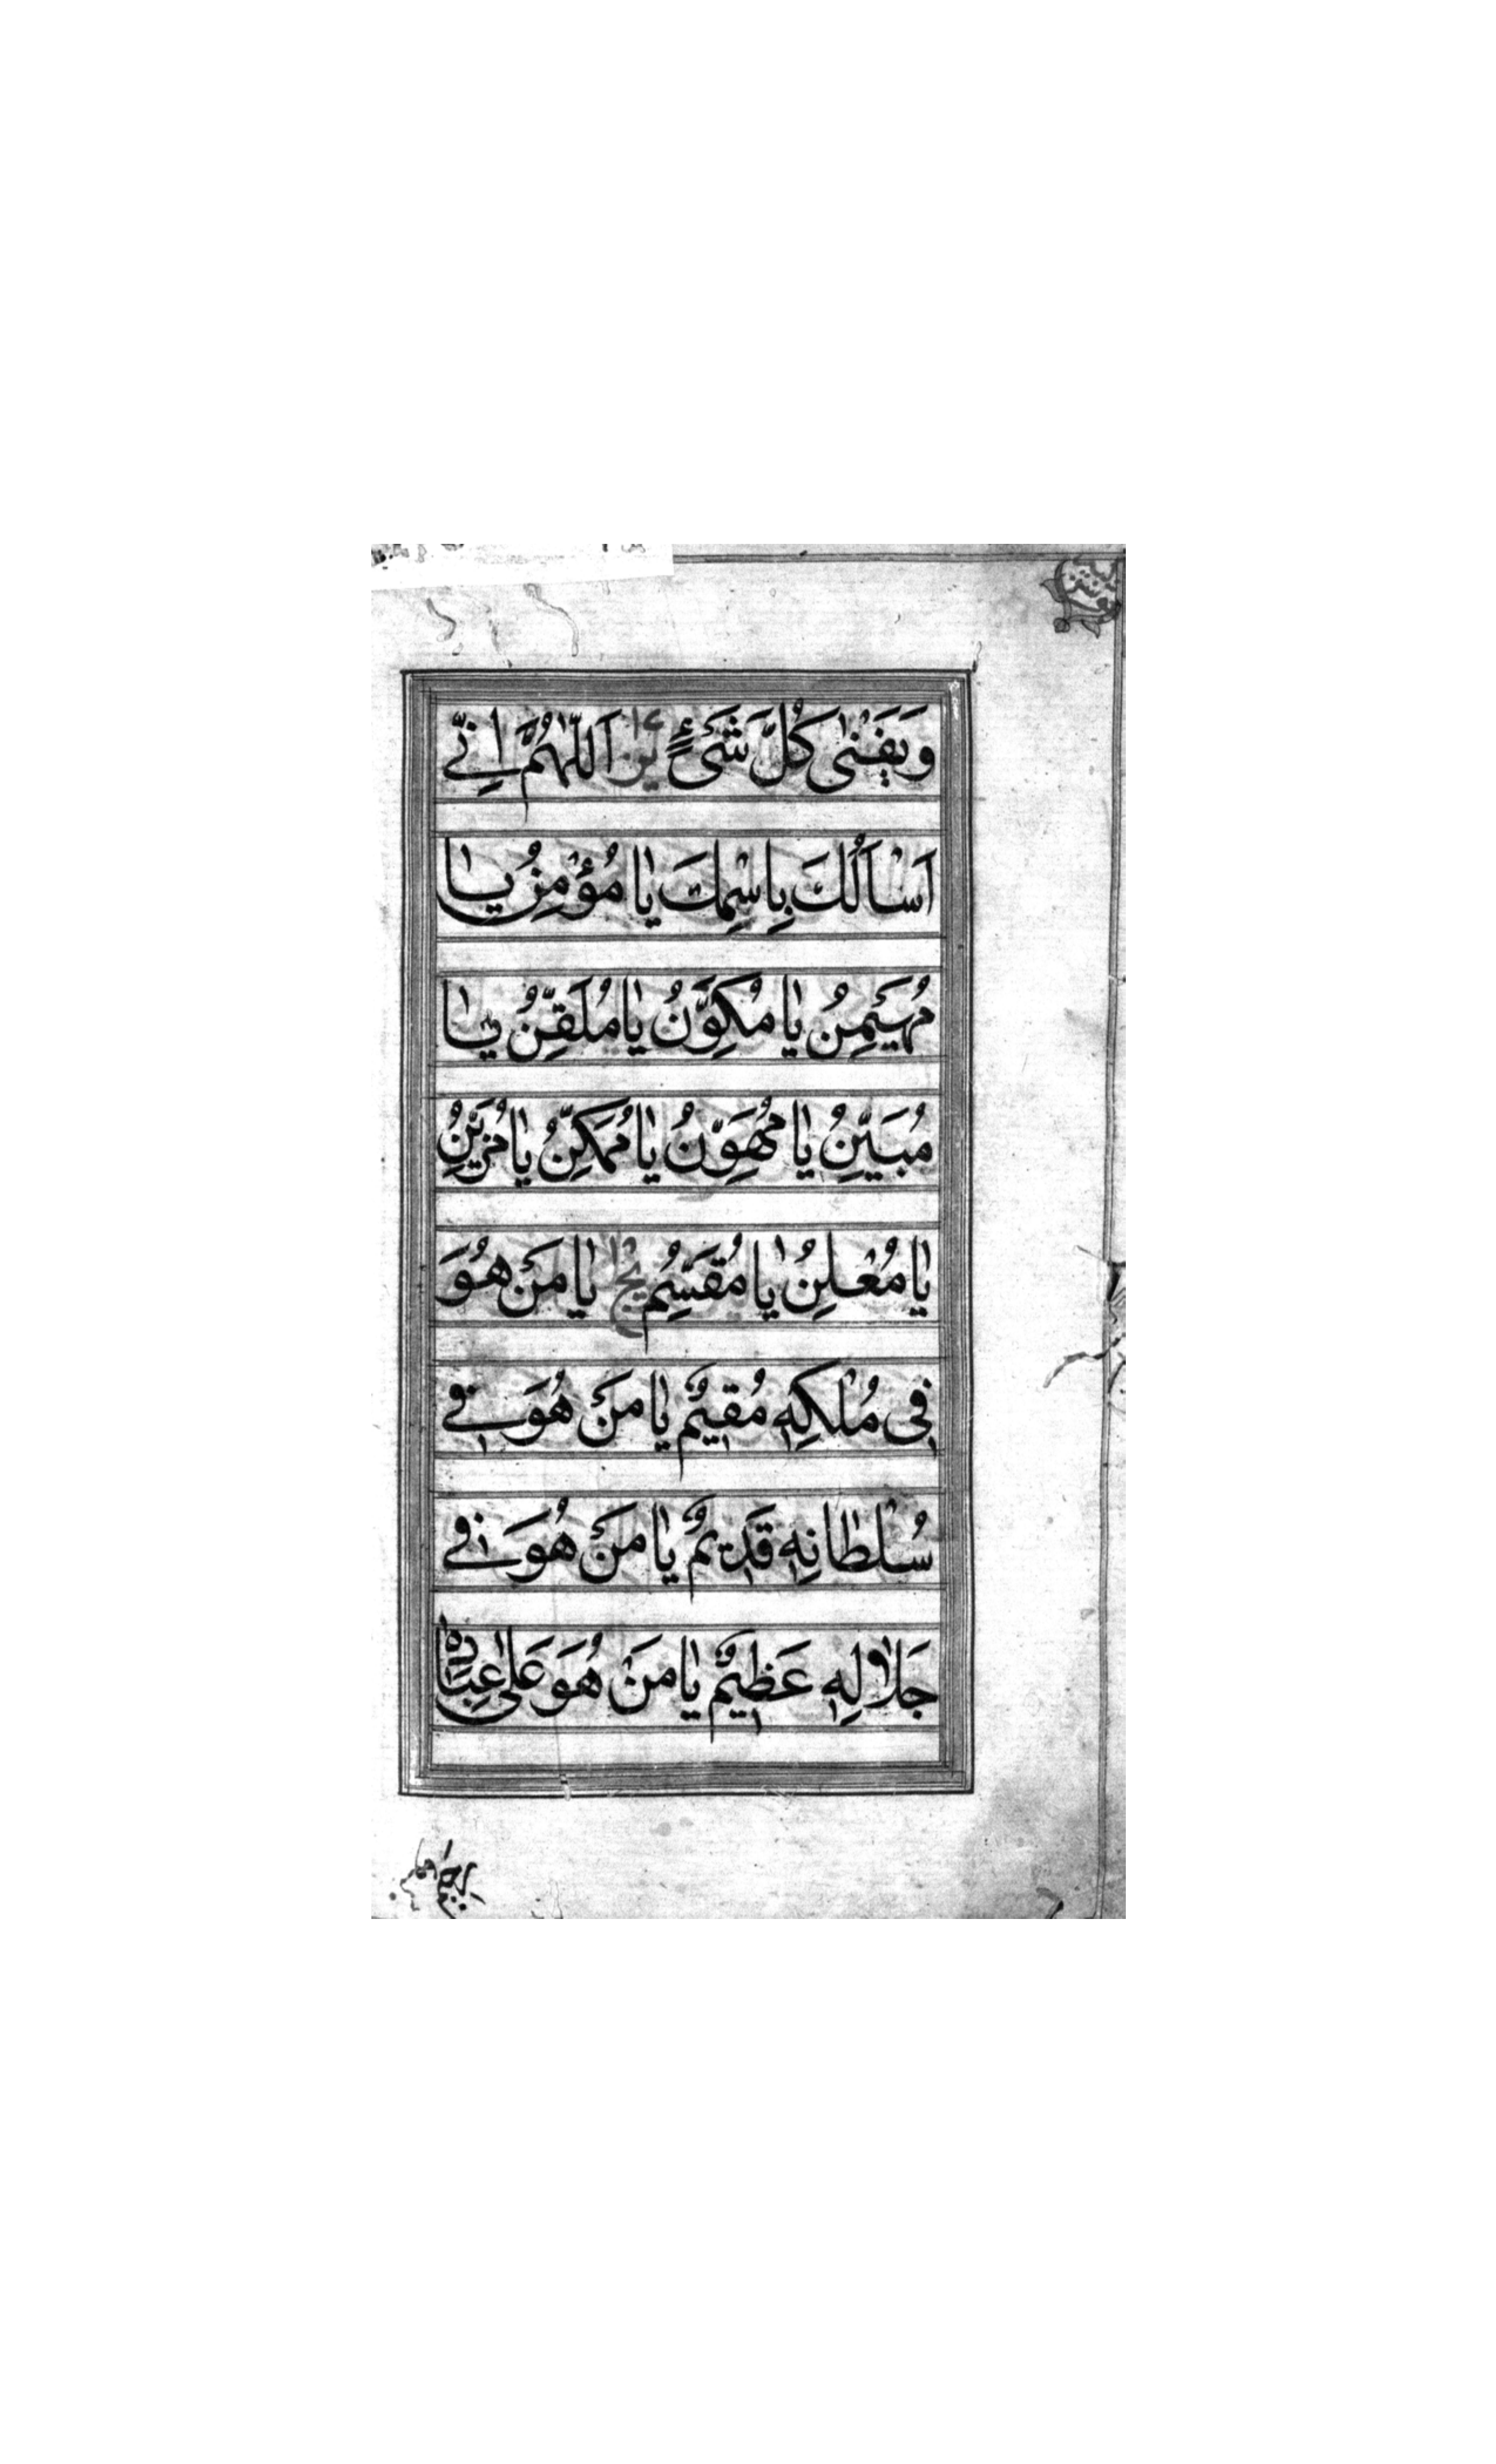 وَيَفْنىٰ كُلَّ شَیْءٍ یز اَللّٰهُمَّ اِنّے
اَسْاَلُكَ بِاسْمِكَ یٰا مُؤْمِنُ یٰا
مُهَيْمِنُ یٰا مُكَوِّنُ یٰا مُلَقِّنُ یٰا
مُبَيِّنُ یٰا مُهَوِّنُ یٰا مُمَكِّنُ یٰا مُزَيِّنُ
یٰا مُعْلِنُ یٰا مُقَسِّمُ یح یٰا مَنْ هُوَ
فِی مُلْكِهِ مُقِيمٌ یٰا مَنْ هُوَ فے
سُلْطٰانِهِ قَدِيمٌ یٰا مَنْ هُوَ فے
جَلاٰلِهِ عَظِيمٌ یٰا مَنْ هُوَ عَلىٰ عِبٰادِهِ
رَحِيمٌ